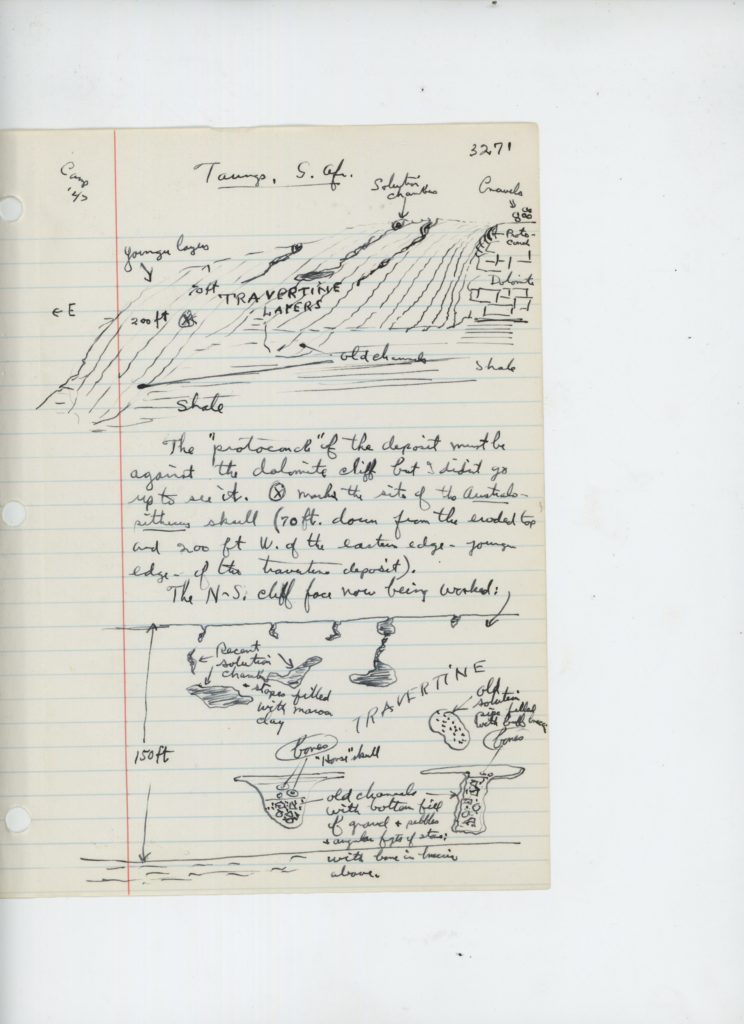 3271
Camp
'47
Taungs, S. Afr.
Solution
chambers
Gravels
Younger layers
Proto-
conch
70ft
TRAVERTINE
LAYERS
Dolomite
← E
200ft ⊗
old channels
Shale
Shale
The "protoconch" of the deposit must be
against the dolomite cliff but I didn't go
up to see it. ⊗ marks the site of the Australo-
pithecus skull (70ft. down from the eroded top
and 200 ft W. of the eastern edge - younger
edge - of the travertine deposit).
The N-S. cliff face now being worked:
Recent
solution
chambers
+ stopes filled
with maroon
clay
TRAVERTINE
old
solution
pipe filled
with
bones
150ft
bones
"Horse" skull
old channels —
with bottom fill
of gravel + pebbles
+ angular frgts of stone;
with bone in breccia
above.